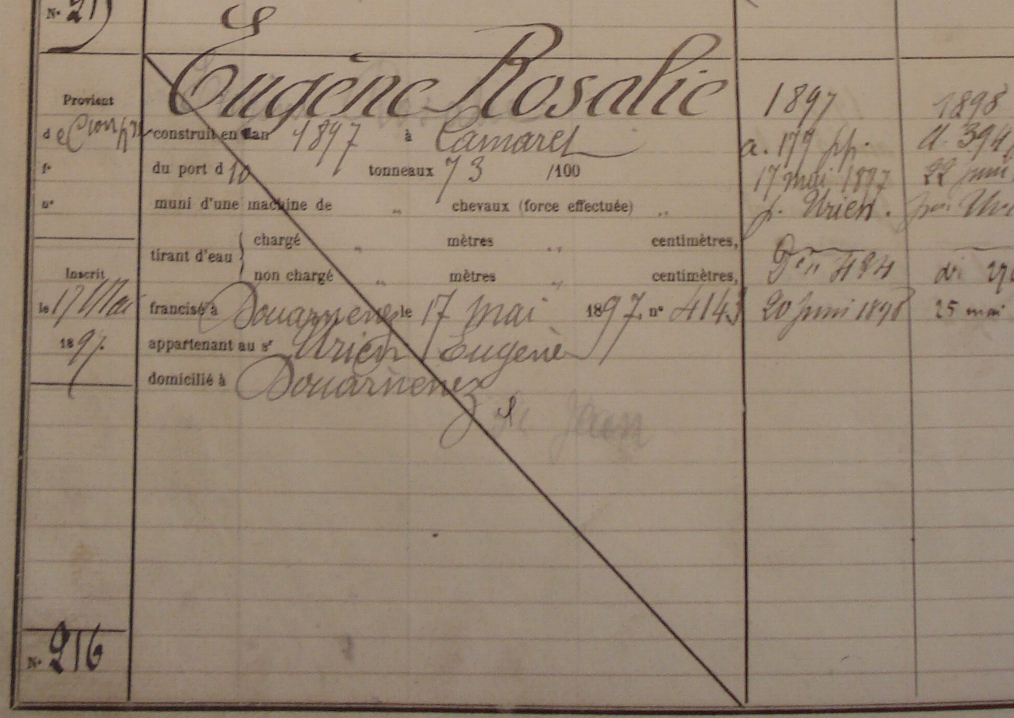 N° 215
Eugène Rosalie
Provient
d
f°
n°
construit en l'an 1897 à Camaret
du port d 10 tonneaux 73 /100
muni d'une machine de " chevaux (force effectuée) "
tirant d'eau { chargé " mètres " centimètres,
non chargé " mètres " centimètres,
Inscrit
le 17 Mai
1897.
francisé à Douarnenez le 17 mai 1897. n° 4143
appartenant au sr Urien Eugène
domicilié à Douarnenez
St Jean
N° 216
1897
a. 177 pp.
17 mai 1897
p. Urien.
Dn 424
20 juin 1898
1898
a. 394
22 juin
25 mai